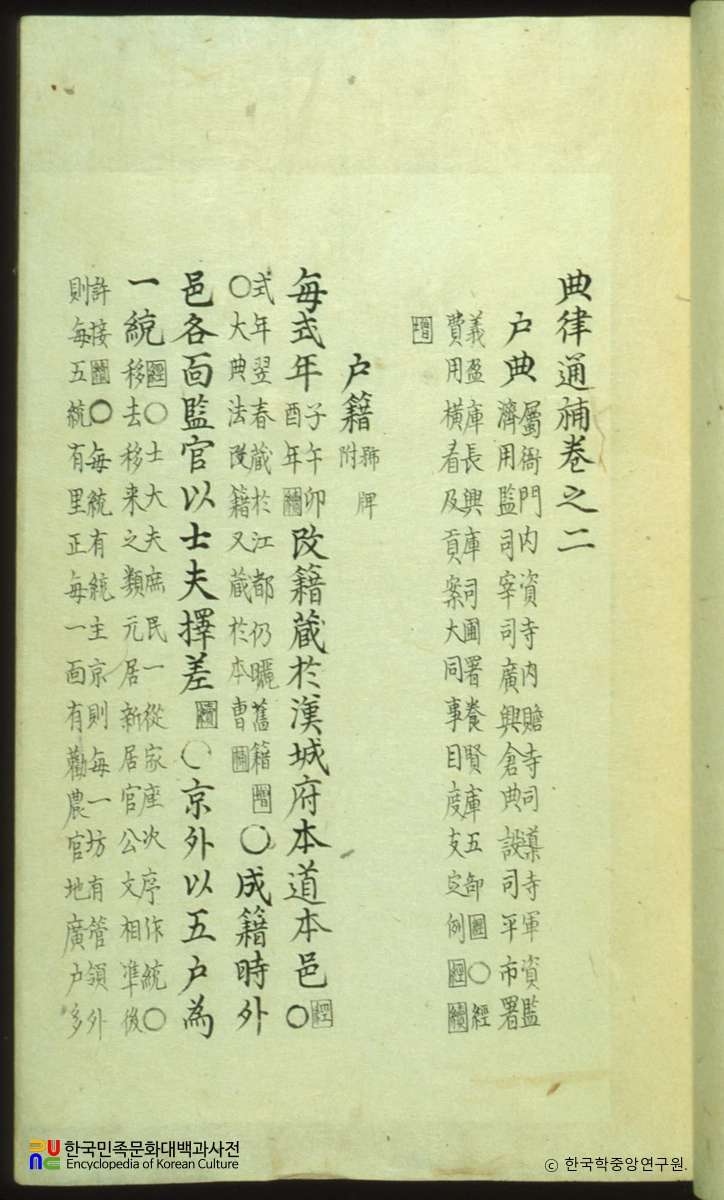 典律通補卷之二
戶典 屬衙門內資寺內贍寺司䆃寺軍資監
濟用監司宰司廣興倉典設司平市署
義盈庫長興庫司圃署養賢庫五部圖〇經
費用橫看及貢案大同事目度支定例經續
增
戶籍 號牌
附
每式年 子午卯
酉年續 改籍藏於漢城府本道本邑 經
〇
式年翌春藏於江都仍曬舊籍增
〇大典法改籍又藏於本曹 〇成籍時外
邑各面監官以士夫擇差 續〇京外以五戶為
一統 經〇士大夫庶民一從家座次序作統〇
移去移来之類元居新居官公文相準後
許接續〇每統有統主京則每一坊有管領外
則每五統有里正每一面有勸農官地廣戶多
한국민족문화대백과사전
Encyclopedia of Korean Culture
ⓒ 한국학중앙연구원.